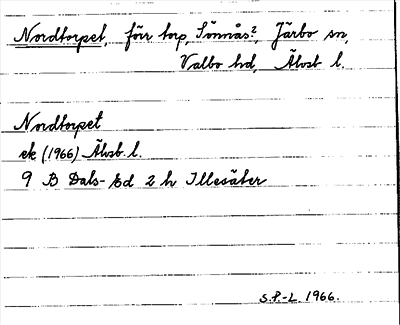 Nordtorpet, förr torp, Sönnås?, Järbo sn,
Valbo hd, Älvsb l.
Nordtorpet
ek (1966) Älvsb. l.
9 B Dals-Ed 2 h Illesäter
S.P.-L 1966.